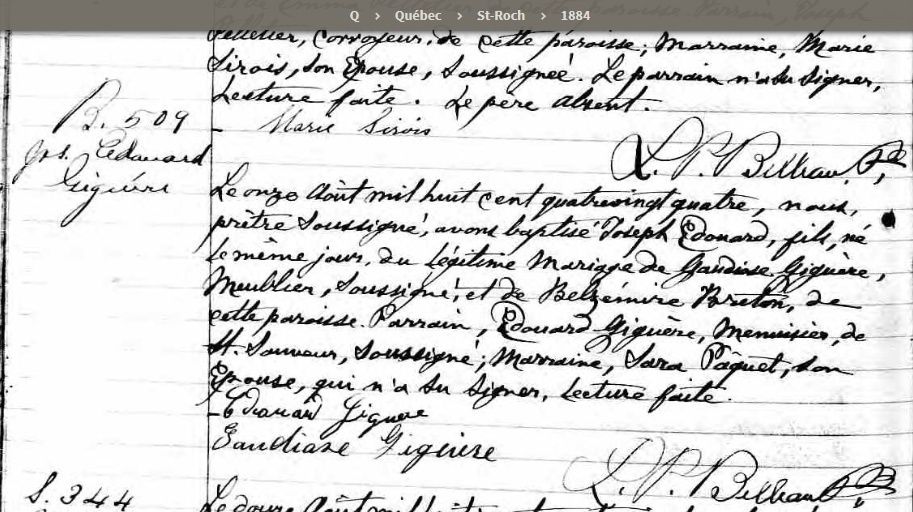 Q > Québec > St-Roch > 1884
Pelletier, Corroyeur, de cette paroisse; Marraine, Marie
Sirois, son Epouse, soussignée. Le parrain n'a su signer,
Lecture faite. Le père absent.
Marie Sirois
B. 509
Jos. Edouard
Giguère
L. P. Belleau, Ptre
Le onze Août mil huit cent quatrevingt quatre, nous,
prêtre soussigné, avons baptisé Joseph Edouard, fils, né
le même jour, du légitime Mariage de Gaudiose Giguère,
Meublier, soussigné, et de Belzémire Breton, de
cette paroisse. Parrain, Edouard Giguère, Menuisier, de
St. Sauveur, soussigné; Marraine, Sara Pâquet, son
Epouse, qui n'a su signer, Lecture faite.
Edouard Giguere
Gaudiose Giguère
L. P. Belleau Ptre
S. 344
Le douze Août mil huit cent